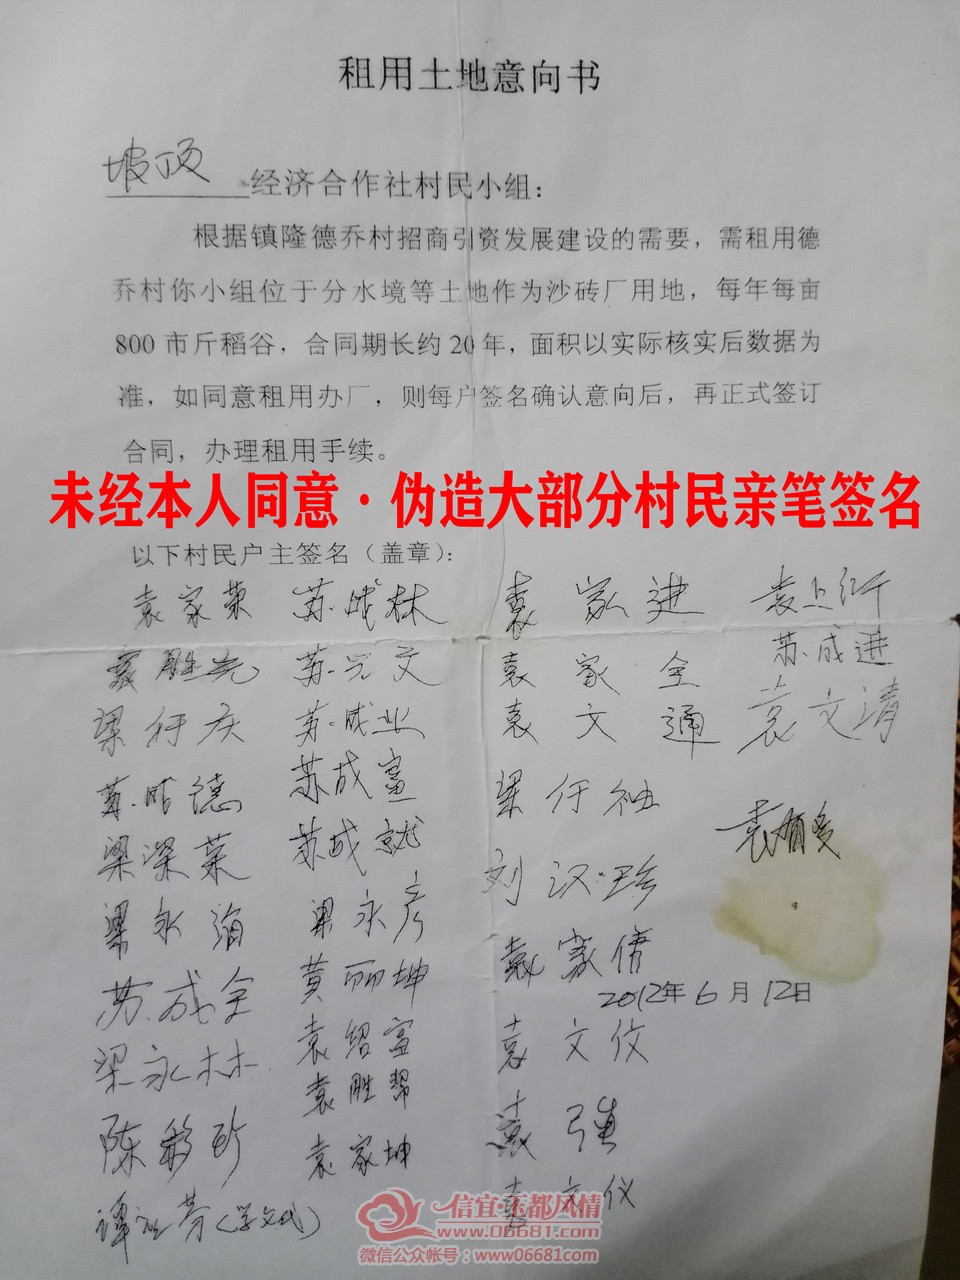 租用土地意向书
坡顶 经济合作社村民小组：
根据镇隆德乔村招商引资发展建设的需要，需租用德
乔村你小组位于分水境等土地作为沙砖厂用地，每年每亩
800市斤稻谷，合同期长约20年，面积以实际核实后数据为
准，如同意租用办厂，则每户签名确认意向后，再正式签订
合同，办理租用手续。
未经本人同意·伪造大部分村民亲笔签名
以下村民户主签名（盖章）：
袁家荣 苏成林 袁家进
苏兴文 袁家全 苏成进
梁行庆 苏成业 袁文通 袁文清
苏成德 苏成富 梁行袖
梁深荣 苏成就 刘汉珍 袁有多
梁永海 梁永彦 袁家倩
苏成全 黄丽坤 2012年6月12日
梁永林 袁绍富 袁文仪
陈彩珍 袁胜帮 袁强
袁家坤 袁文仪
信宜·玉都风情
www.06681.com
微信公众帐号：www06681com